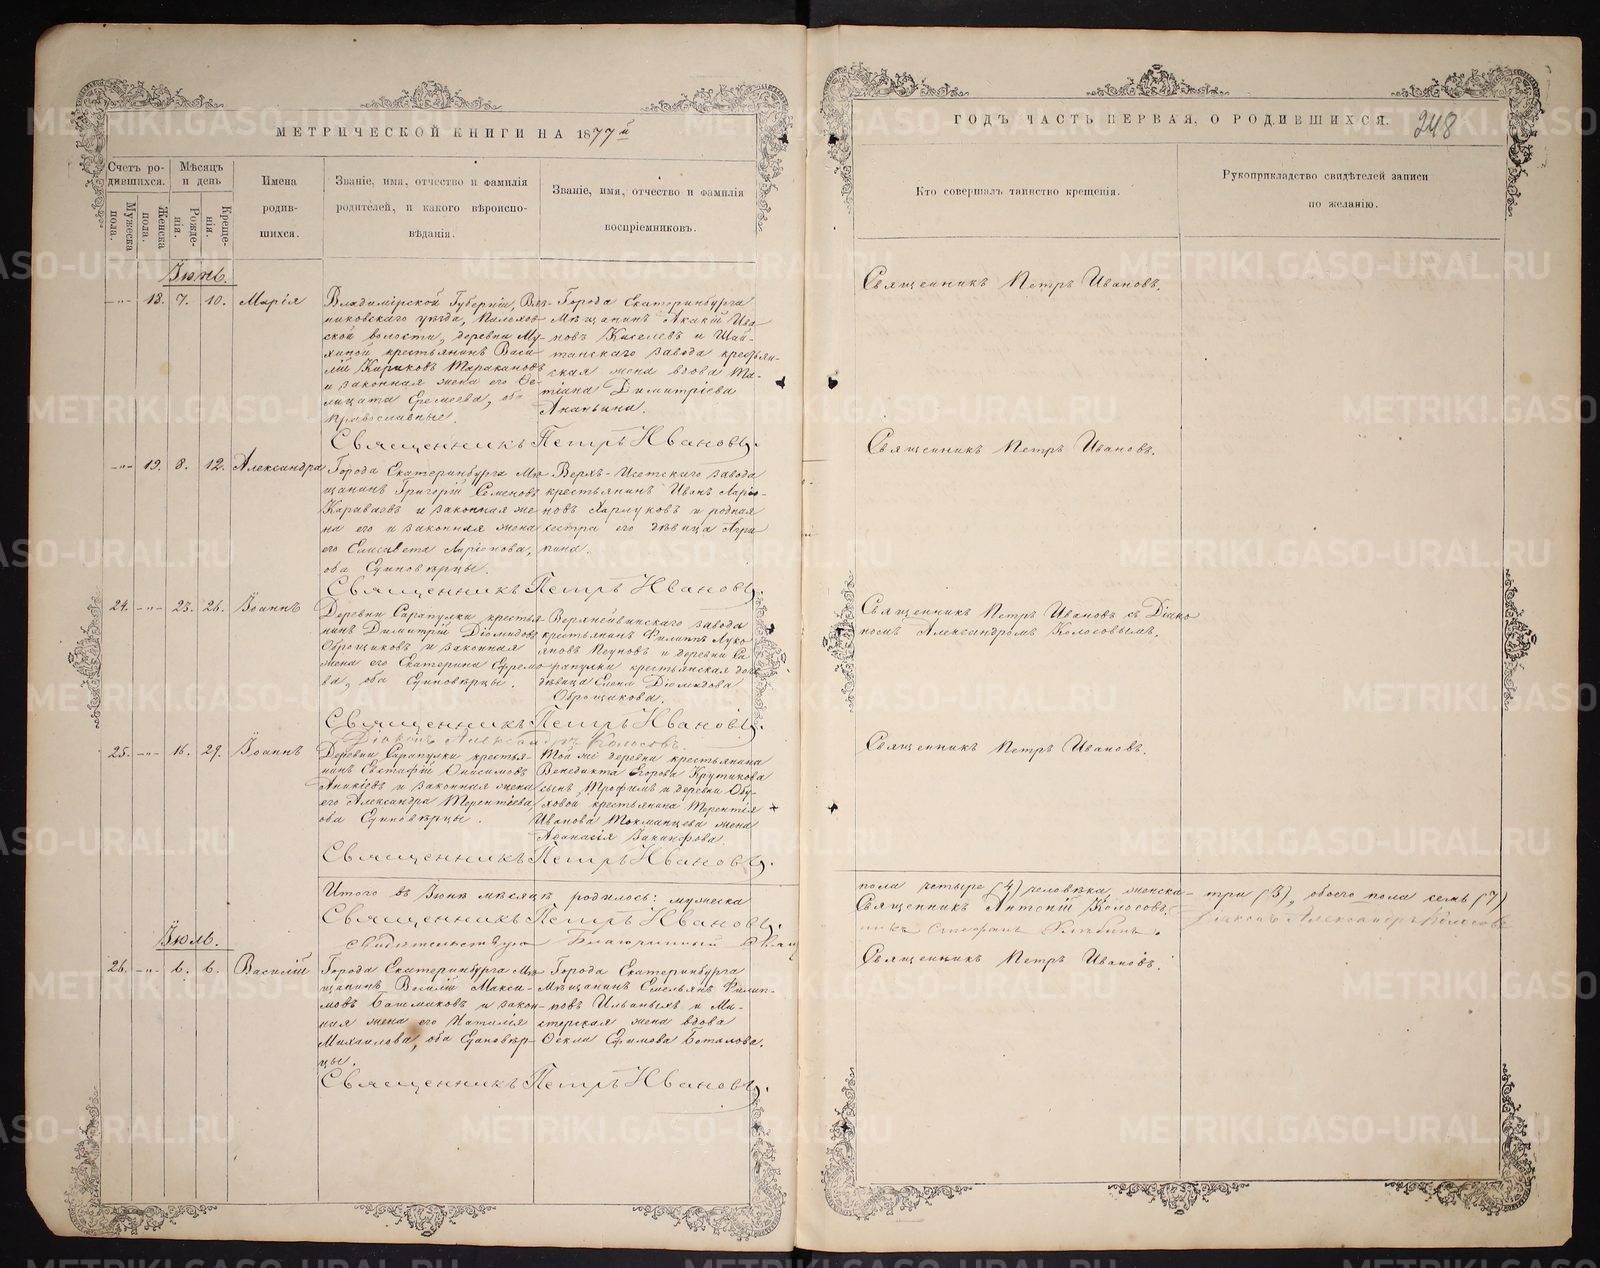 МЕТРИЧЕСКОЙ КНИГИ НА 1877й
ГОДЪ ЧАСТЬ ПЕРВАЯ, О РОДИВШИХСЯ.
248
Счетъ ро-
дившихся.
Мужеска
пола.
Женска
пола.
Мѣсяцъ
и день
Рожде-
нія.
Креще-
нія.
Имена
родив-
шихся.
Званіе, имя, отчество и фамилія
родителей, и какого вѣроиспо-
вѣданія.
Званіе, имя, отчество и фамилія
воспріемниковъ.
Кто совершалъ таинство крещенія.
Рукоприкладство свидѣтелей записи
по желанію.
Іюнь.
-„- 18. 7. 10. Марія
Владимірской Губерніи, Вяз-
никовскаго уѣзда, Палехов-
ской волости, деревни Му-
хиной крестьянинъ Васи-
лій Кариковъ Таракановъ
и законная жена его Фе-
лицата Еремеева, оба
православные.
Города Екатеринбурга
Мѣщанинъ Акакій Ива-
новъ Киселевъ и Шай-
танскаго завода крестьян-
ская жена вдова Та-
тіана Димитріева
Ананьина.
Священникъ Петръ Ивановъ.
Священникъ Петръ Ивановъ.
-„- 19. 8. 12. Александра
Города Екатеринбурга Мѣ-
щанинъ Григорій Семеновъ
Караваевъ и законная же-
на его и законная жена
его Елисавета Ларіонова,
оба Единовѣрцы.
Верхъ-Исетскаго завода
крестьянинъ Иванъ Ларіо-
новъ и родная
сестра его дѣвица Агри-
пина.
Священникъ Петръ Ивановъ.
Священникъ Петръ Ивановъ.
24. -„- 23. 26. Іоаннъ
Деревни Сарапулки крестья-
нинъ Димитрій Діомидовъ
Оброщиковъ и законная
жена его Екатерина Ефремо-
ва, оба Единовѣрцы.
Верхнейвинскаго завода
крестьянинъ Филиппъ Луко-
яновъ и деревни Са-
рапулки крестьянская дочь
дѣвица Елена Діомидова
Оброщикова.
Священникъ Петръ Ивановъ.
Діаконъ Александръ Колосовъ.
Священникъ Петръ Ивановъ съ Діако-
номъ Александромъ Колосовымъ.
25. -„- 16. 29. Іоаннъ
Деревни Сарапулки крестья-
нинъ Евстафій Онисимовъ
Аникіевъ и законная жена
его Александра Терентіева
оба Единовѣрцы.
Той же деревни крестьянина
Венедикта Егорова Крутикова
сынъ Трофимъ и деревни Обу-
ховой крестьянина Терентія
Иванова Токманцева жена
Афанасія
Священникъ Петръ Ивановъ.
Священникъ Петръ Ивановъ.
Итого въ Іюнѣ мѣсяцѣ родилось: мужеска
пола четыре (4) человѣка, женска-
три (3), обоего пола семь (7)
Священникъ Петръ Ивановъ.
Священникъ Антоній Колосовъ.
Діаконъ Александръ Колосовъ
свидѣтельствую Благочинный
Іюль.
26. -„- 6. 6. Василій
Города Екатеринбурга Мѣ-
щанинъ Василій Макси-
мовъ Батмиковъ и закон-
ная жена его Наталія
Михаилова, оба Единовѣр-
цы.
Города Екатеринбурга
Мѣщанинъ Емельянъ Филип-
повъ Ильиныхъ и Ма-
стерская жена вдова
Фекла Ефимова Боталова.
Священникъ Петръ Ивановъ.
Священникъ Петръ Ивановъ.
METRIKI.GASO-URAL.RU